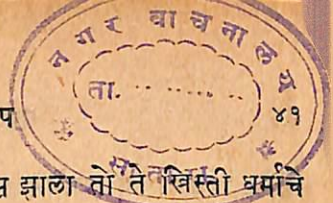 नगर वाचनालय
ता. ........
प
४१
झाला तो ते ख्रिस्ती धर्माचे